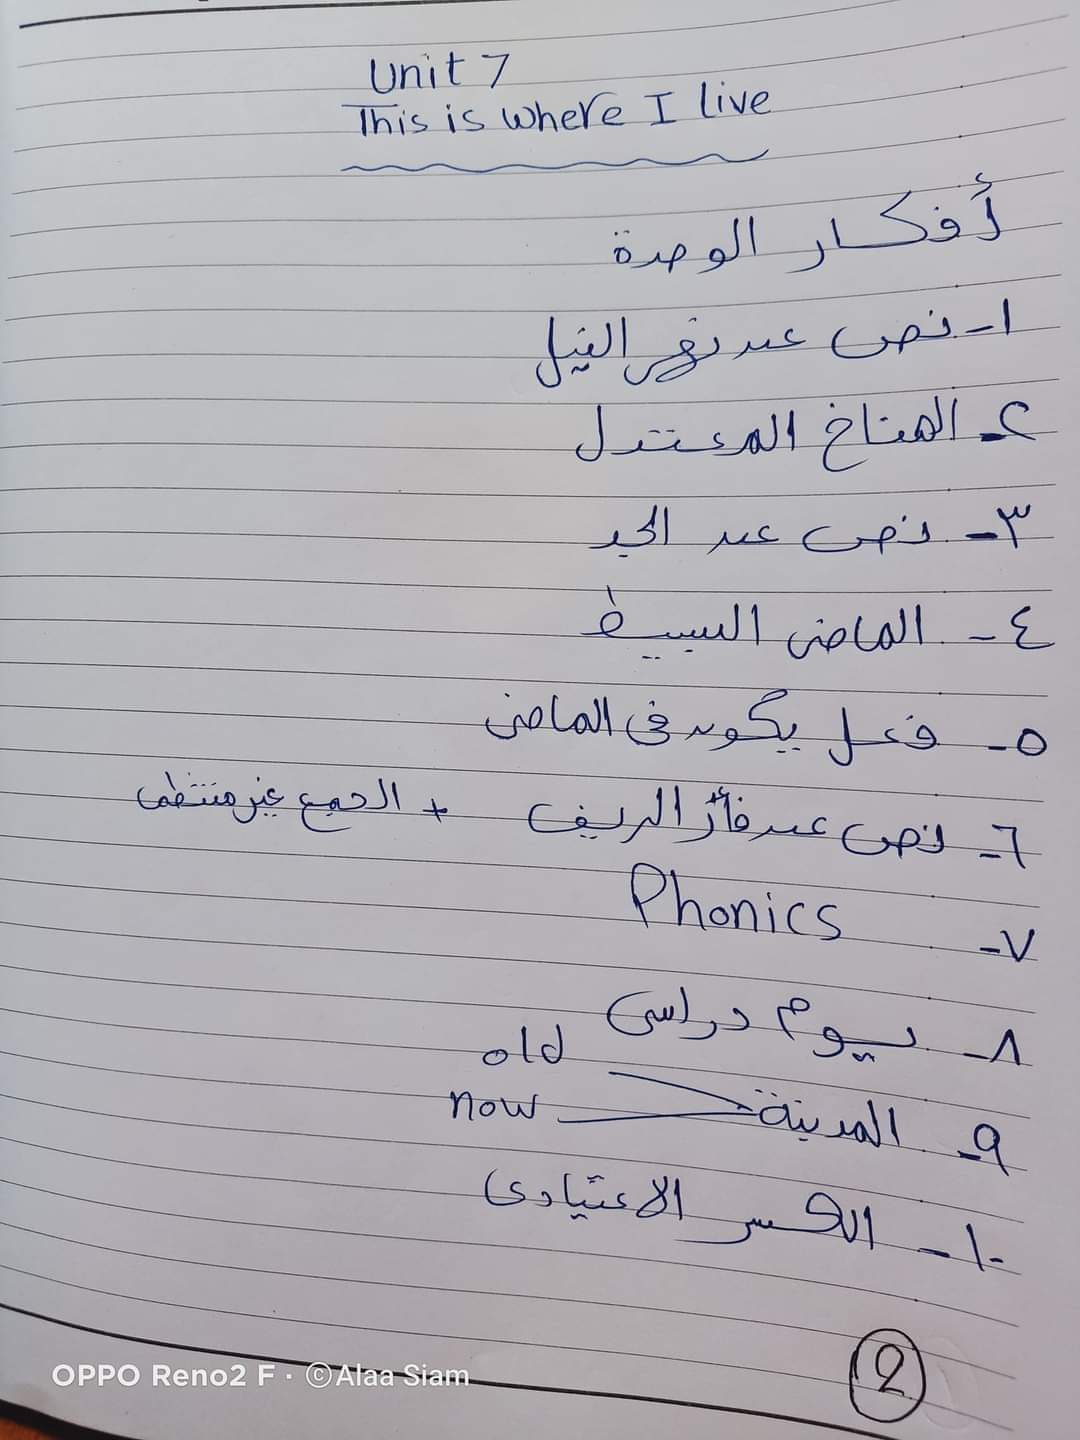 Unit 7
This is where I live
أفكار الوحدة
١- نص عن نهر النيل
٢- المناخ المعتدل
٣- نص عن الجد
٤- الماضى البسيط
٥- فعل يكون فى الماضى
٦- نص عن فأر الريف + الجمع غير منتظم
٧- Phonics
٨- يوم دراسى
old
٩- المدينة now
١٠- الكسر الاعتيادى
2
OPPO Reno2 F · ©Alaa Siam